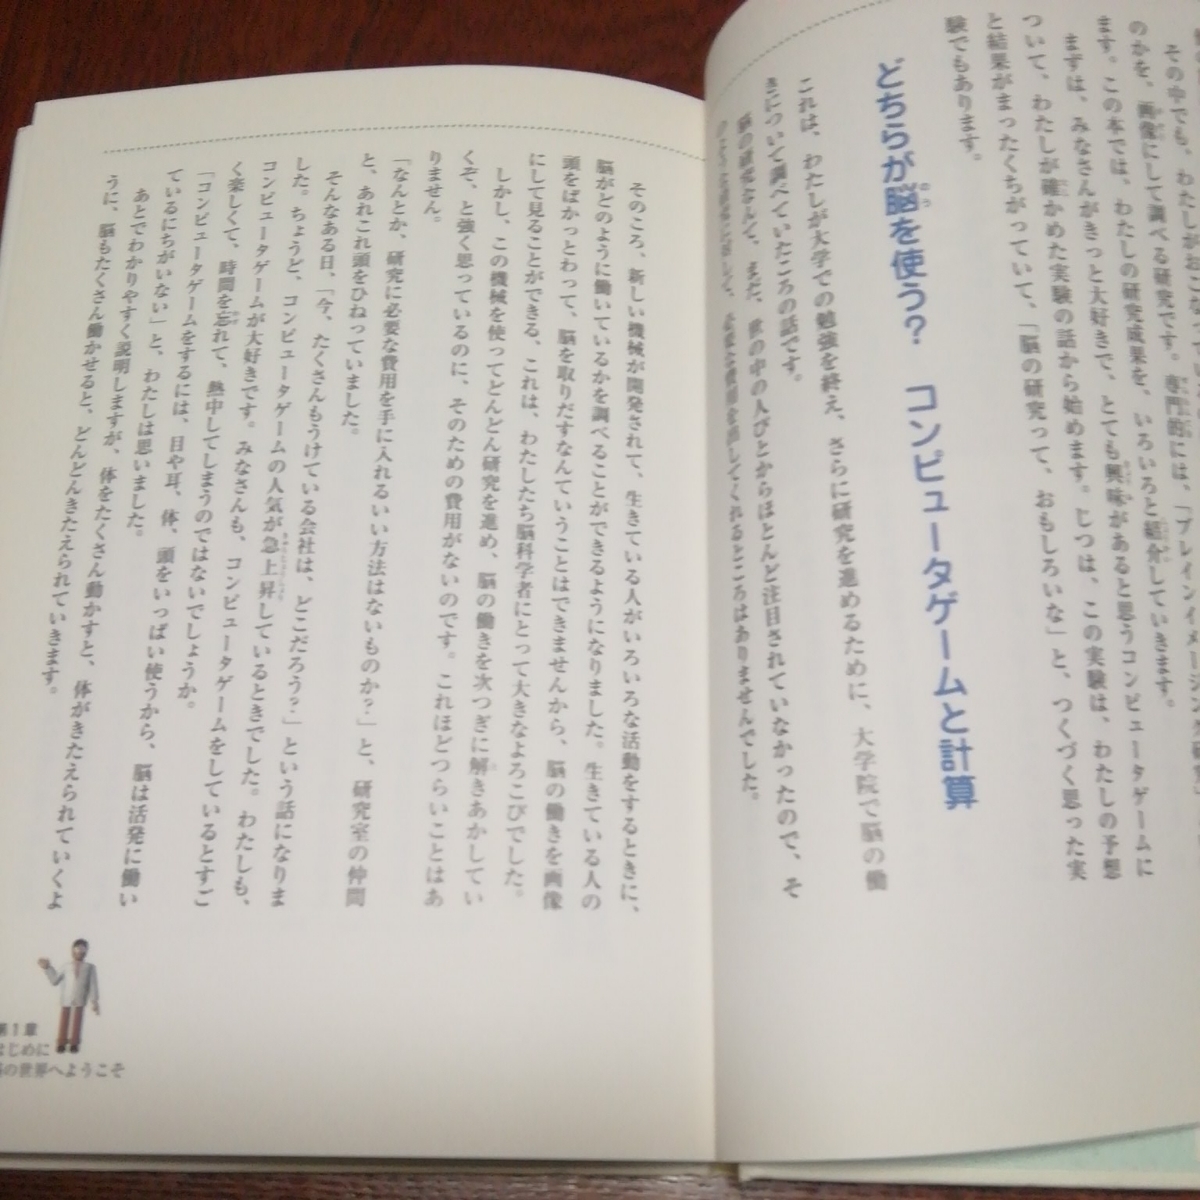 その中でも、わたしがおこなってい
のかを、画像にして調べる研究です。専門的には、「ブレインイメージン
ます。この本では、わたしの研究成果を、いろいろと紹介していきます。
まずは、みなさんがきっと大好きで、とても興味があると思うコンピュータゲームに
ついて、わたしが確かめた実験の話から始めます。じつは、この実験は、わたしの予想
と結果がまったくちがっていて、「脳の研究って、おもしろいな」と、つくづく思った実
験でもあります。
どちらが脳を使う？ コンピュータゲームと計算
これは、わたしが大学での勉強を終え、さらに研究を進めるために、大学院で脳の働
きについて調べていたころの話です。
脳の研究なんて、まだ、世の中の人びとからほとんど注目されていなかったので、そ
して、必要な費用を出してくれるところはありませんでした。
そのころ、新しい機械が開発されて、生きている人がいろいろな活動をするときに、
脳がどのように働いているかを調べることができるようになりました。生きている人の
頭をぱかっとわって、脳を取りだすなんていうことはできませんから、脳の働きを画像
にして見ることができる、これは、わたしたち脳科学者にとって大きなよろこびでした。
しかし、この機械を使ってどんどん研究を進め、脳の働きを次つぎに解きあかしてい
くぞ、と強く思っているのに、そのための費用がないのです。これほどつらいことはあ
りません。
「なんとか、研究に必要な費用を手に入れるいい方法はないものか？」と、研究室の仲間
と、あれこれ頭をひねっていました。
そんなある日、「今、たくさんもうけている会社は、どこだろう？」という話になりま
した。ちょうど、コンピュータゲームの人気が急上昇しているときでした。わたしも、
コンピュータゲームが大好きです。みなさんも、コンピュータゲームをしているとすご
く楽しくて、時間を忘れて、熱中してしまうのではないでしょうか。
「コンピュータゲームをするには、目や耳、体、頭をいっぱい使うから、脳は活発に働い
ているにちがいない」と、わたしは思いました。
あとでわかりやすく説明しますが、体をたくさん動かすと、体がきたえられていくよ
うに、脳もたくさん働かせると、どんどんきたえられていきます。
第1章
はじめに
の世界へようこそ